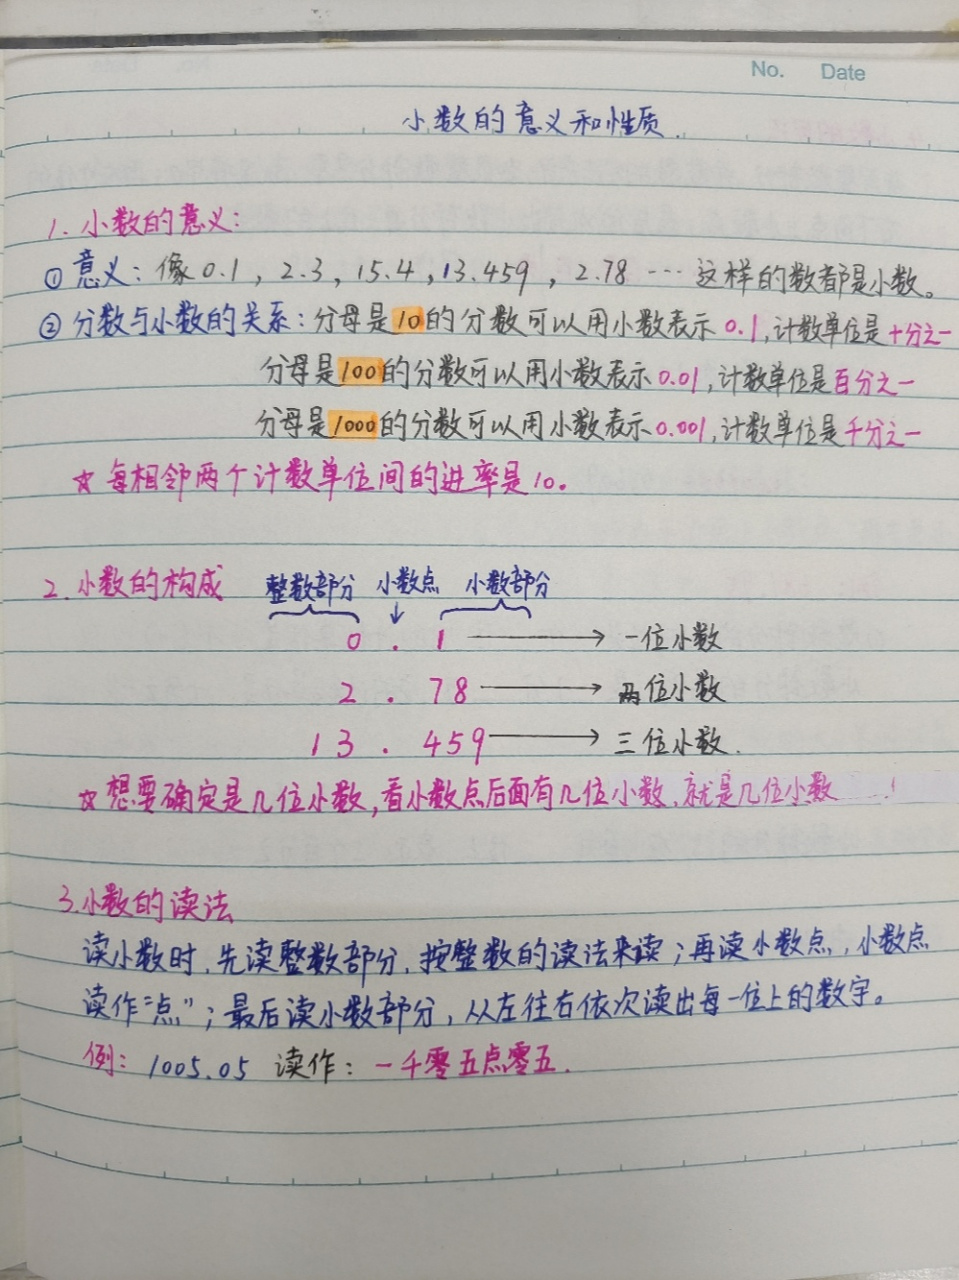 No. Date
小数的意义和性质.
1. 小数的意义:
①意义: 像0.1, 2.3, 15.4, 13.459, 2.78 … 这样的数都是小数。
②分数与小数的关系: 分母是10的分数可以用小数表示0.1, 计数单位是十分之一
分母是100的分数可以用小数表示0.01, 计数单位是百分之一
分母是1000的分数可以用小数表示0.001, 计数单位是千分之一
☆每相邻两个计数单位间的进率是10。
2. 小数的构成 整数部分 小数点 小数部分
0 . 1 → 一位小数
2 . 78 → 两位小数
13 . 459 → 三位小数.
☆想要确定是几位小数, 看小数点后面有几位小数, 就是几位小数
3. 小数的读法
读小数时, 先读整数部分, 按整数的读法来读; 再读小数点, 小数点
读作“点”; 最后读小数部分, 从左往右依次读出每一位上的数字。
例: 1005.05 读作: 一千零五点零五.